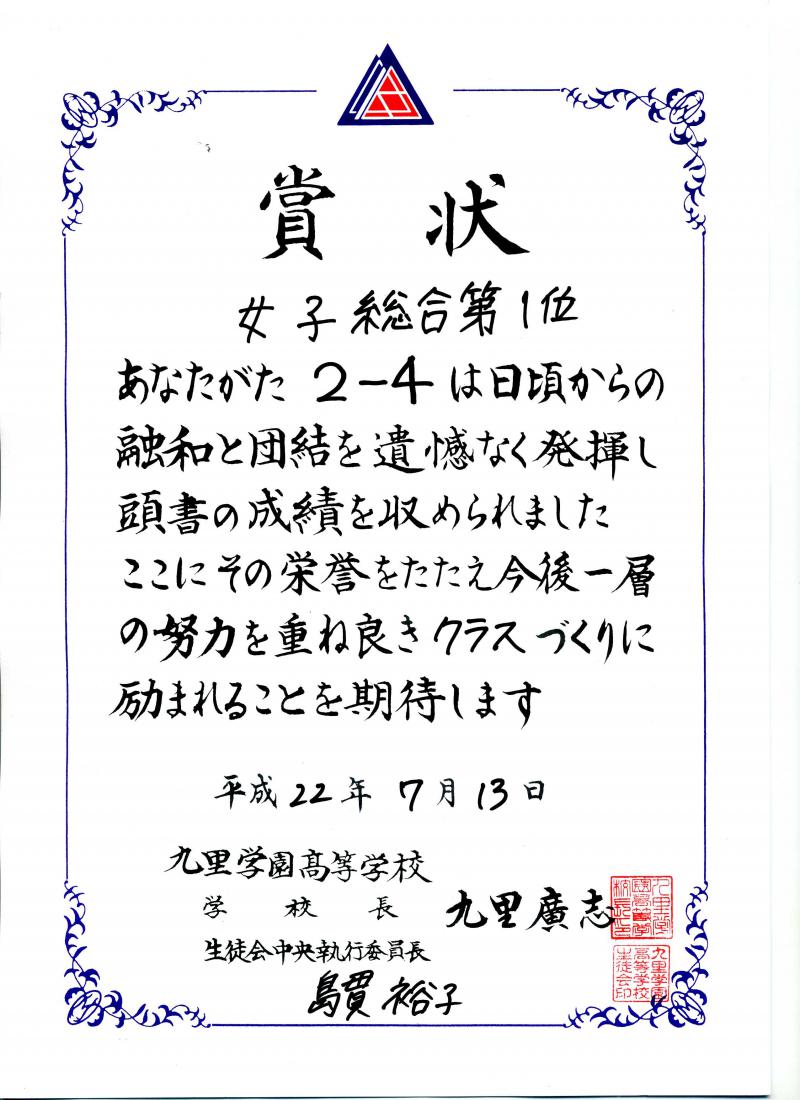 賞状
女子総合第1位
あなたがた 2-4 は日頃からの
融和と団結を遺憾なく発揮し
頭書の成績を収められました
ここにその栄誉をたたえ今後一層
の努力を重ね良きクラスづくりに
励まれることを期待します
平成22年7月13日
九里学園高等学校
学校長 九里廣志
生徒会中央執行委員長
島貫裕子
九里学園高等学校長之印
九里学園高等学校生徒会印